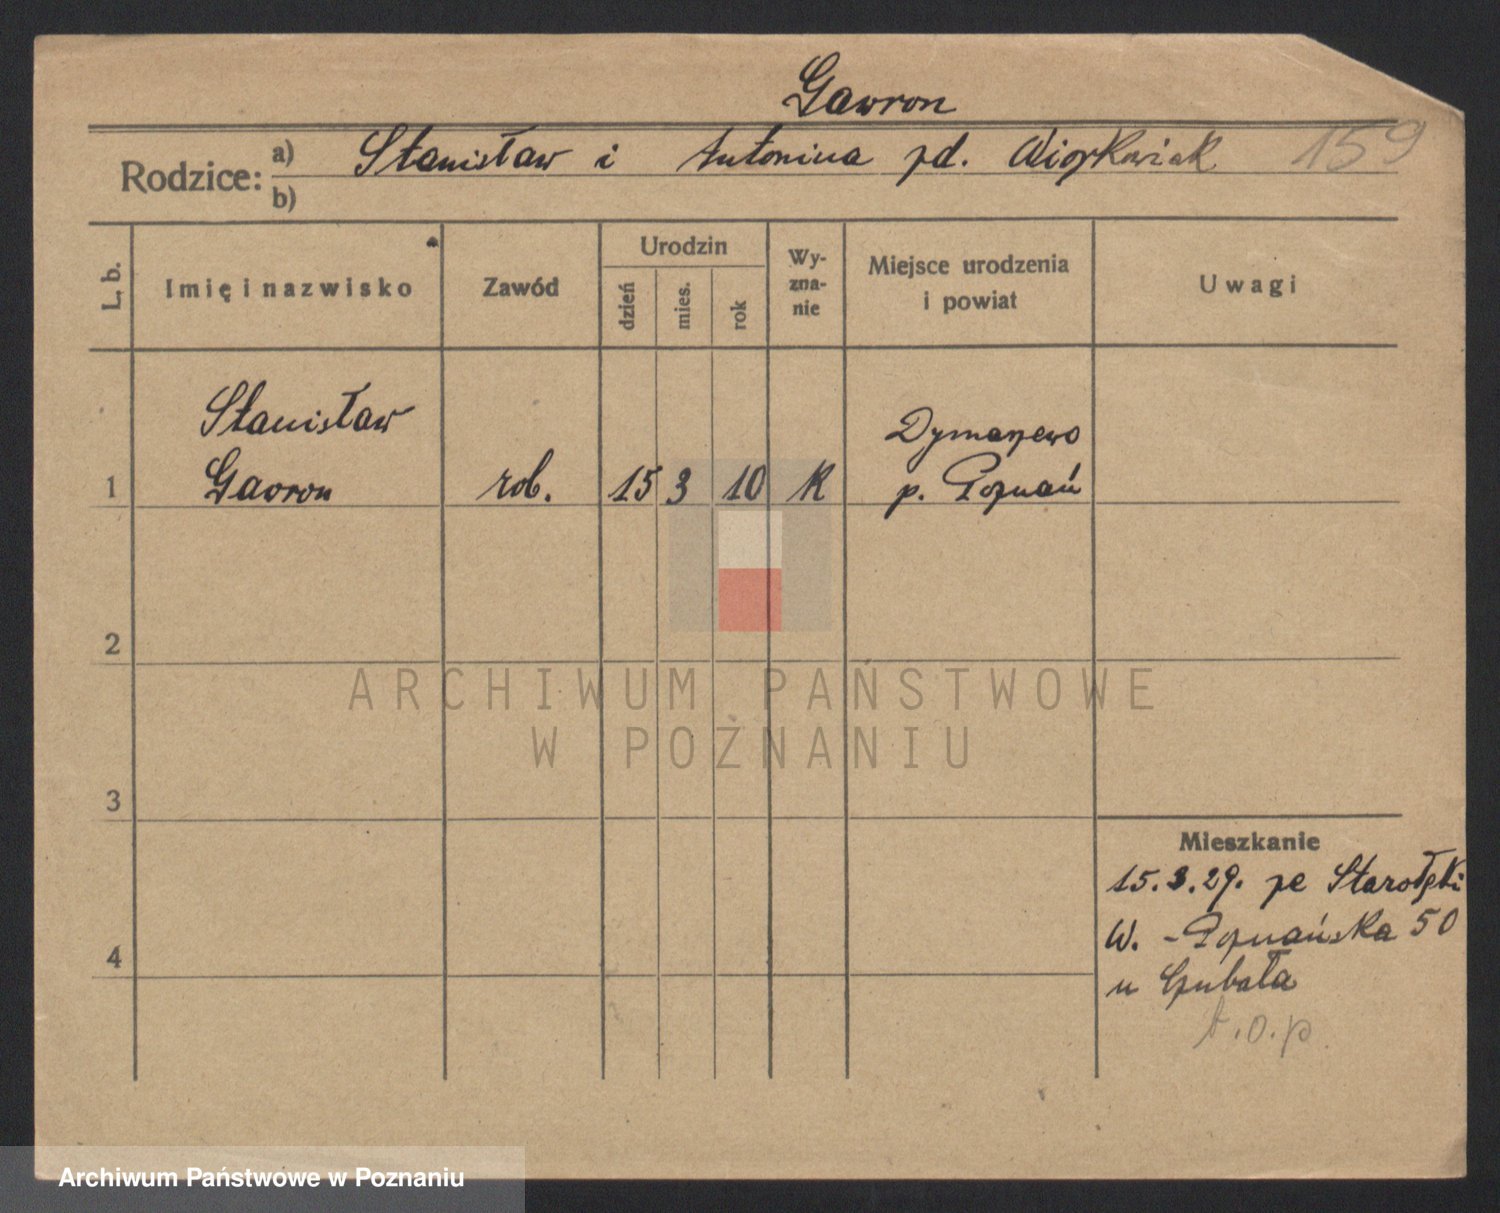 Gawron
Rodzice: a) Stanisław i Antonina zd. Wiorkowiak 159
b)
L. b. Imię i nazwisko Zawód Urodzin dzień mies. rok Wyzna-nie Miejsce urodzenia i powiat Uwagi
Stanisław
1 Gawron rob. 15 3 10 K p. Poznań
2
ARCHIWUM PAŃSTWOWE
W POZNANIU
3
Mieszkanie
15.3.29. ze Starołęki
4 W. - Poznańska 50
u
t.o.p.
Archiwum Państwowe w Poznaniu